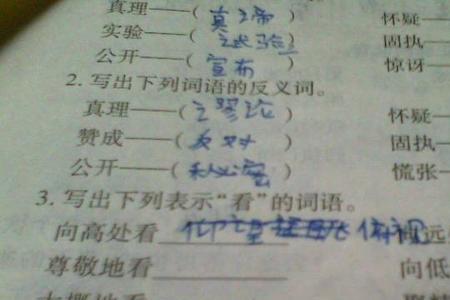 真理——(真谛) 怀疑
实验——(试验) 固执
公开——(宣布) 惊讶
2. 写出下列词语的反义词。
真理——(谬论) 怀疑—
赞成——(反对) 固执—
公开——(秘密) 慌张—
3. 写出下列表示“看”的词语。
向高处看 仰望 俯视 远
尊敬地看 向低